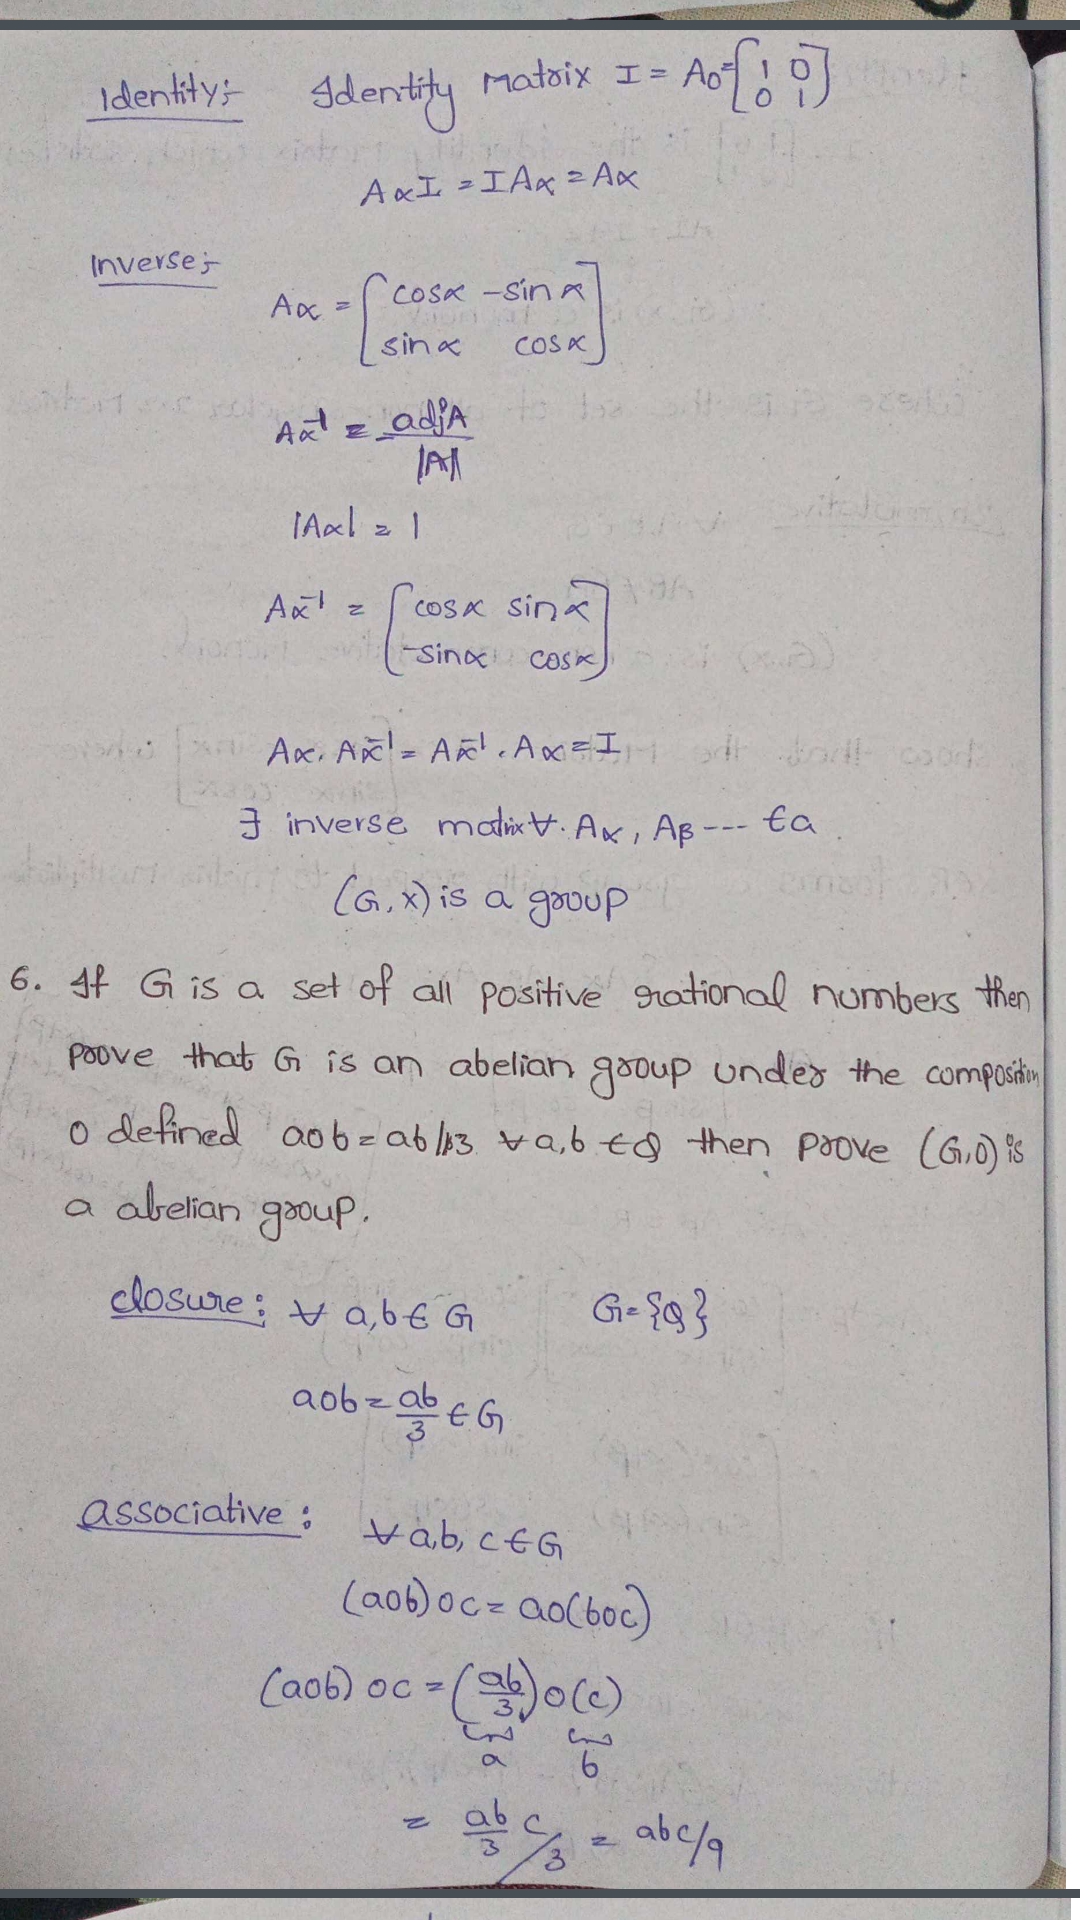 Identity:- Identity Matrix I = A0 = [1 0
0 1]
AαI = IAα = Aα
Inverse:-
Aα = [cosα -sinα
sinα cosα]
Aα⁻¹ = adjA
|A|
|Aα| = 1
Aα⁻¹ = [cosα sinα
-sinα cosα]
Aα. Aα⁻¹ = Aα⁻¹. Aα = I
∃ inverse matrix ∀. Aα, Aβ --- ∈ a
(G, x) is a group
6. If G is a set of all positive rational numbers then
prove that G is an abelian group under the composition
o defined aob = ab/3 ∀ a,b ∈ Q then prove (G,O) is
a abelian group.
closure: ∀ a,b ∈ G G = {Q}
aob = ab/3 ∈ G
associative: ∀ a,b, c ∈ G
(aob) oc = ao(boc)
(aob) oc = (ab/3) o (c)
a b
= ab/3 c/3 = abc/9